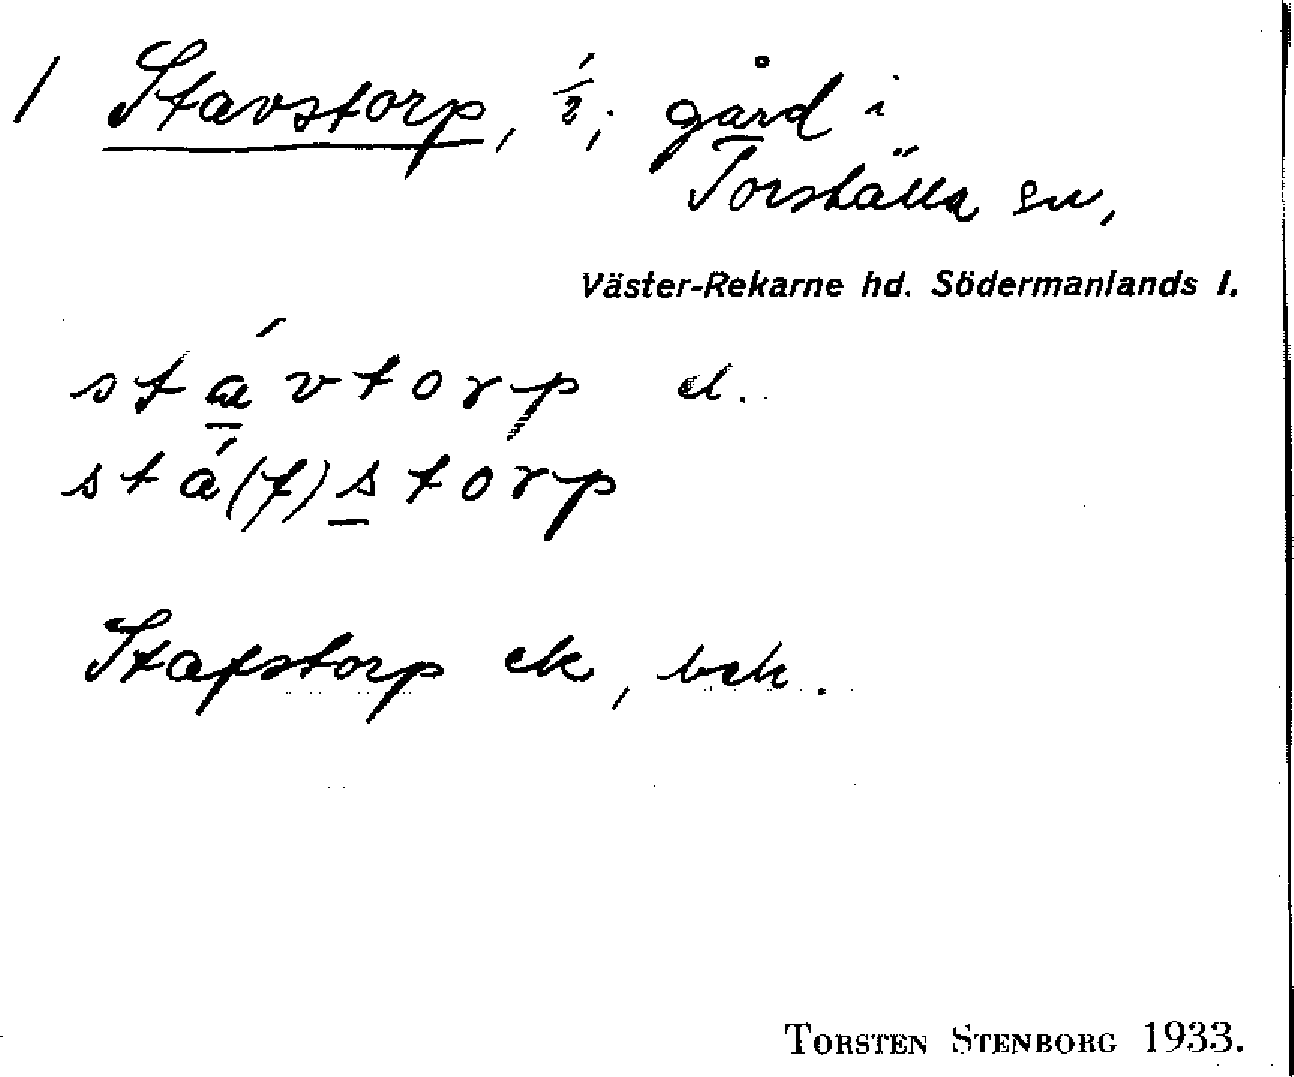 1 Stavstorp, 1/2; gård i
Torshälla sn,
Väster-Rekarne hd. Södermanlands l.
stávtorp el.
stá(f)storp
Stafstorp ek, bek.
TORSTEN STENBORG 1933.